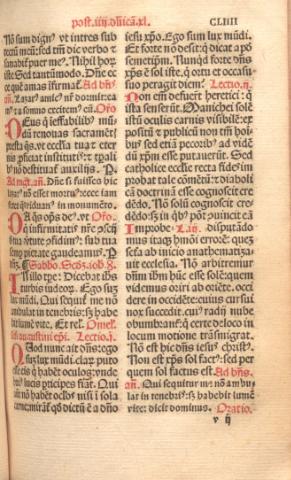 post.iiij.dñicã.xl.
CLIIII
Nõ sum dign⁹ vt intres sub
tectũ meũ: sed tm̃ dic verbo ⁊
sanabit̃ puer me⁹. Nihil hor
tor
ce quẽ amas ĩfirmat̃. Ad bñs.
añ. Lazar⁹ amic⁹ nr̃ dormit: ea
m⁹ ⁊ a somno excitem⁹ eũ. Oro
Deus q̃ ineffabilib⁹ mũ
dũ renouas sacramẽt̃:
presta q̃s. vt ecclia tua ⁊ eter
nis ꝓficiat institutis: ⁊ tpali
b⁹ nõ destituat̃ auxilijs. P.
Ad mgt̃.añ. Dñe si fuisses hic
laz
iacet q̃triduan⁹ in monumẽto.
Da q̃s ops de⁹. vt Oro.
q̃ infirmitatis nr̃e ꝓscij
sub tua
semp pietate gaudeam⁹. P.
Sabbo. Secdz. ioh. 8.
In illo tpe: Dicebat iħs
turbis iudeoꝝ. Ego suz
lux mũdi. Qui sequit̃ me nõ
ambulat in tenebris: sz habebit
lumẽ vite. Et rel. Omel.
bti augustini epi. Lectio.j.
Quod nunc ait dñs: ego
suz lux mũdi. clarũ puto
esse eis q̃ habẽt oculos: vnde
hui⁹ lucis ꝓticipes fiãt. Qui
aũt nõ habẽt oclos nisi ĩ sola
carne: mirãt̃ qd dictũ ẽ a dño
iesu xp̃o. Ego sum lux mũdi.
Et forte nõ desit: q̃ dicat a põ
semetipm̃. Nunqd forte dñs
xp̃s ẽ sol iste. q̃ ortu ⁊ occasu
suo peragit diem? Lectio.ij.
Non em̃ defuerũt heretici: q̃
ista senserũt. Manichei solẽ
istũ oculis carnis visibilẽ: ex
positũ ⁊ publicũ non tm̃ hoĩbus
sed etiã pecorib⁹ ad vidẽ
dũ xpm̃ esse putauerũt. Sed
catholice ecclesie recta fides im
probat tale cõmẽtũ: ⁊ diaboli
cã doctrinã esse cognoscit cre
dẽdo. Nõ solũ cognoscit cre
dẽdo: sz in qb⁹ põt puincit cã
Improbe- L.iij. disputãdo
mus itaqz hmõi errorẽ: quez
scfa ab inicio anathematiza
uit ecclesia. Nõ arbitremur
dñm iħm hũc esse solẽ: quem
videmus oriri ab oriẽte. occi
dere in occidẽte: cuius cursui
nox succedit. cui⁹ radij nube
obumbrant̃: q̃ certe de loco in
locum motione trãsmigrat.
Nõ est hic dñs iesus christ⁹.
Non est xps sol fact⁹: sed per
quem sol factus est. Ad bñs.
añ. Qui sequitur me nõ ambu
lat in tenebris: sz habebit lumẽ
vite: dicit dominus. Oratio.
v ij